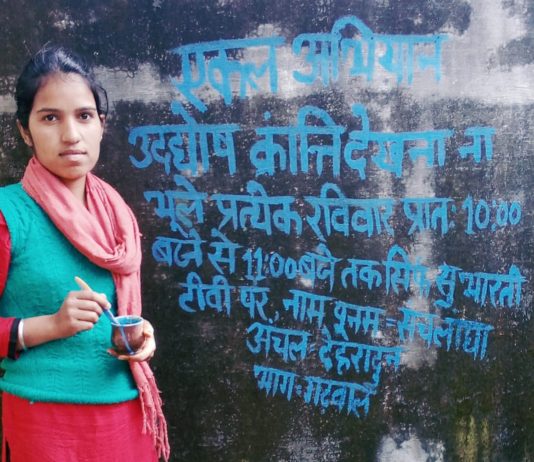 एकल अभियान
उदघोष क्रान्ति देखना ना
भूले प्रत्येक रविवार प्रातः 10:00
बजे से 11:00 बजे तक सिर्फ सुभारती
टीवी पर, नाम पूनम-सच
अंचल-देहरादून
भाग-गढवाल